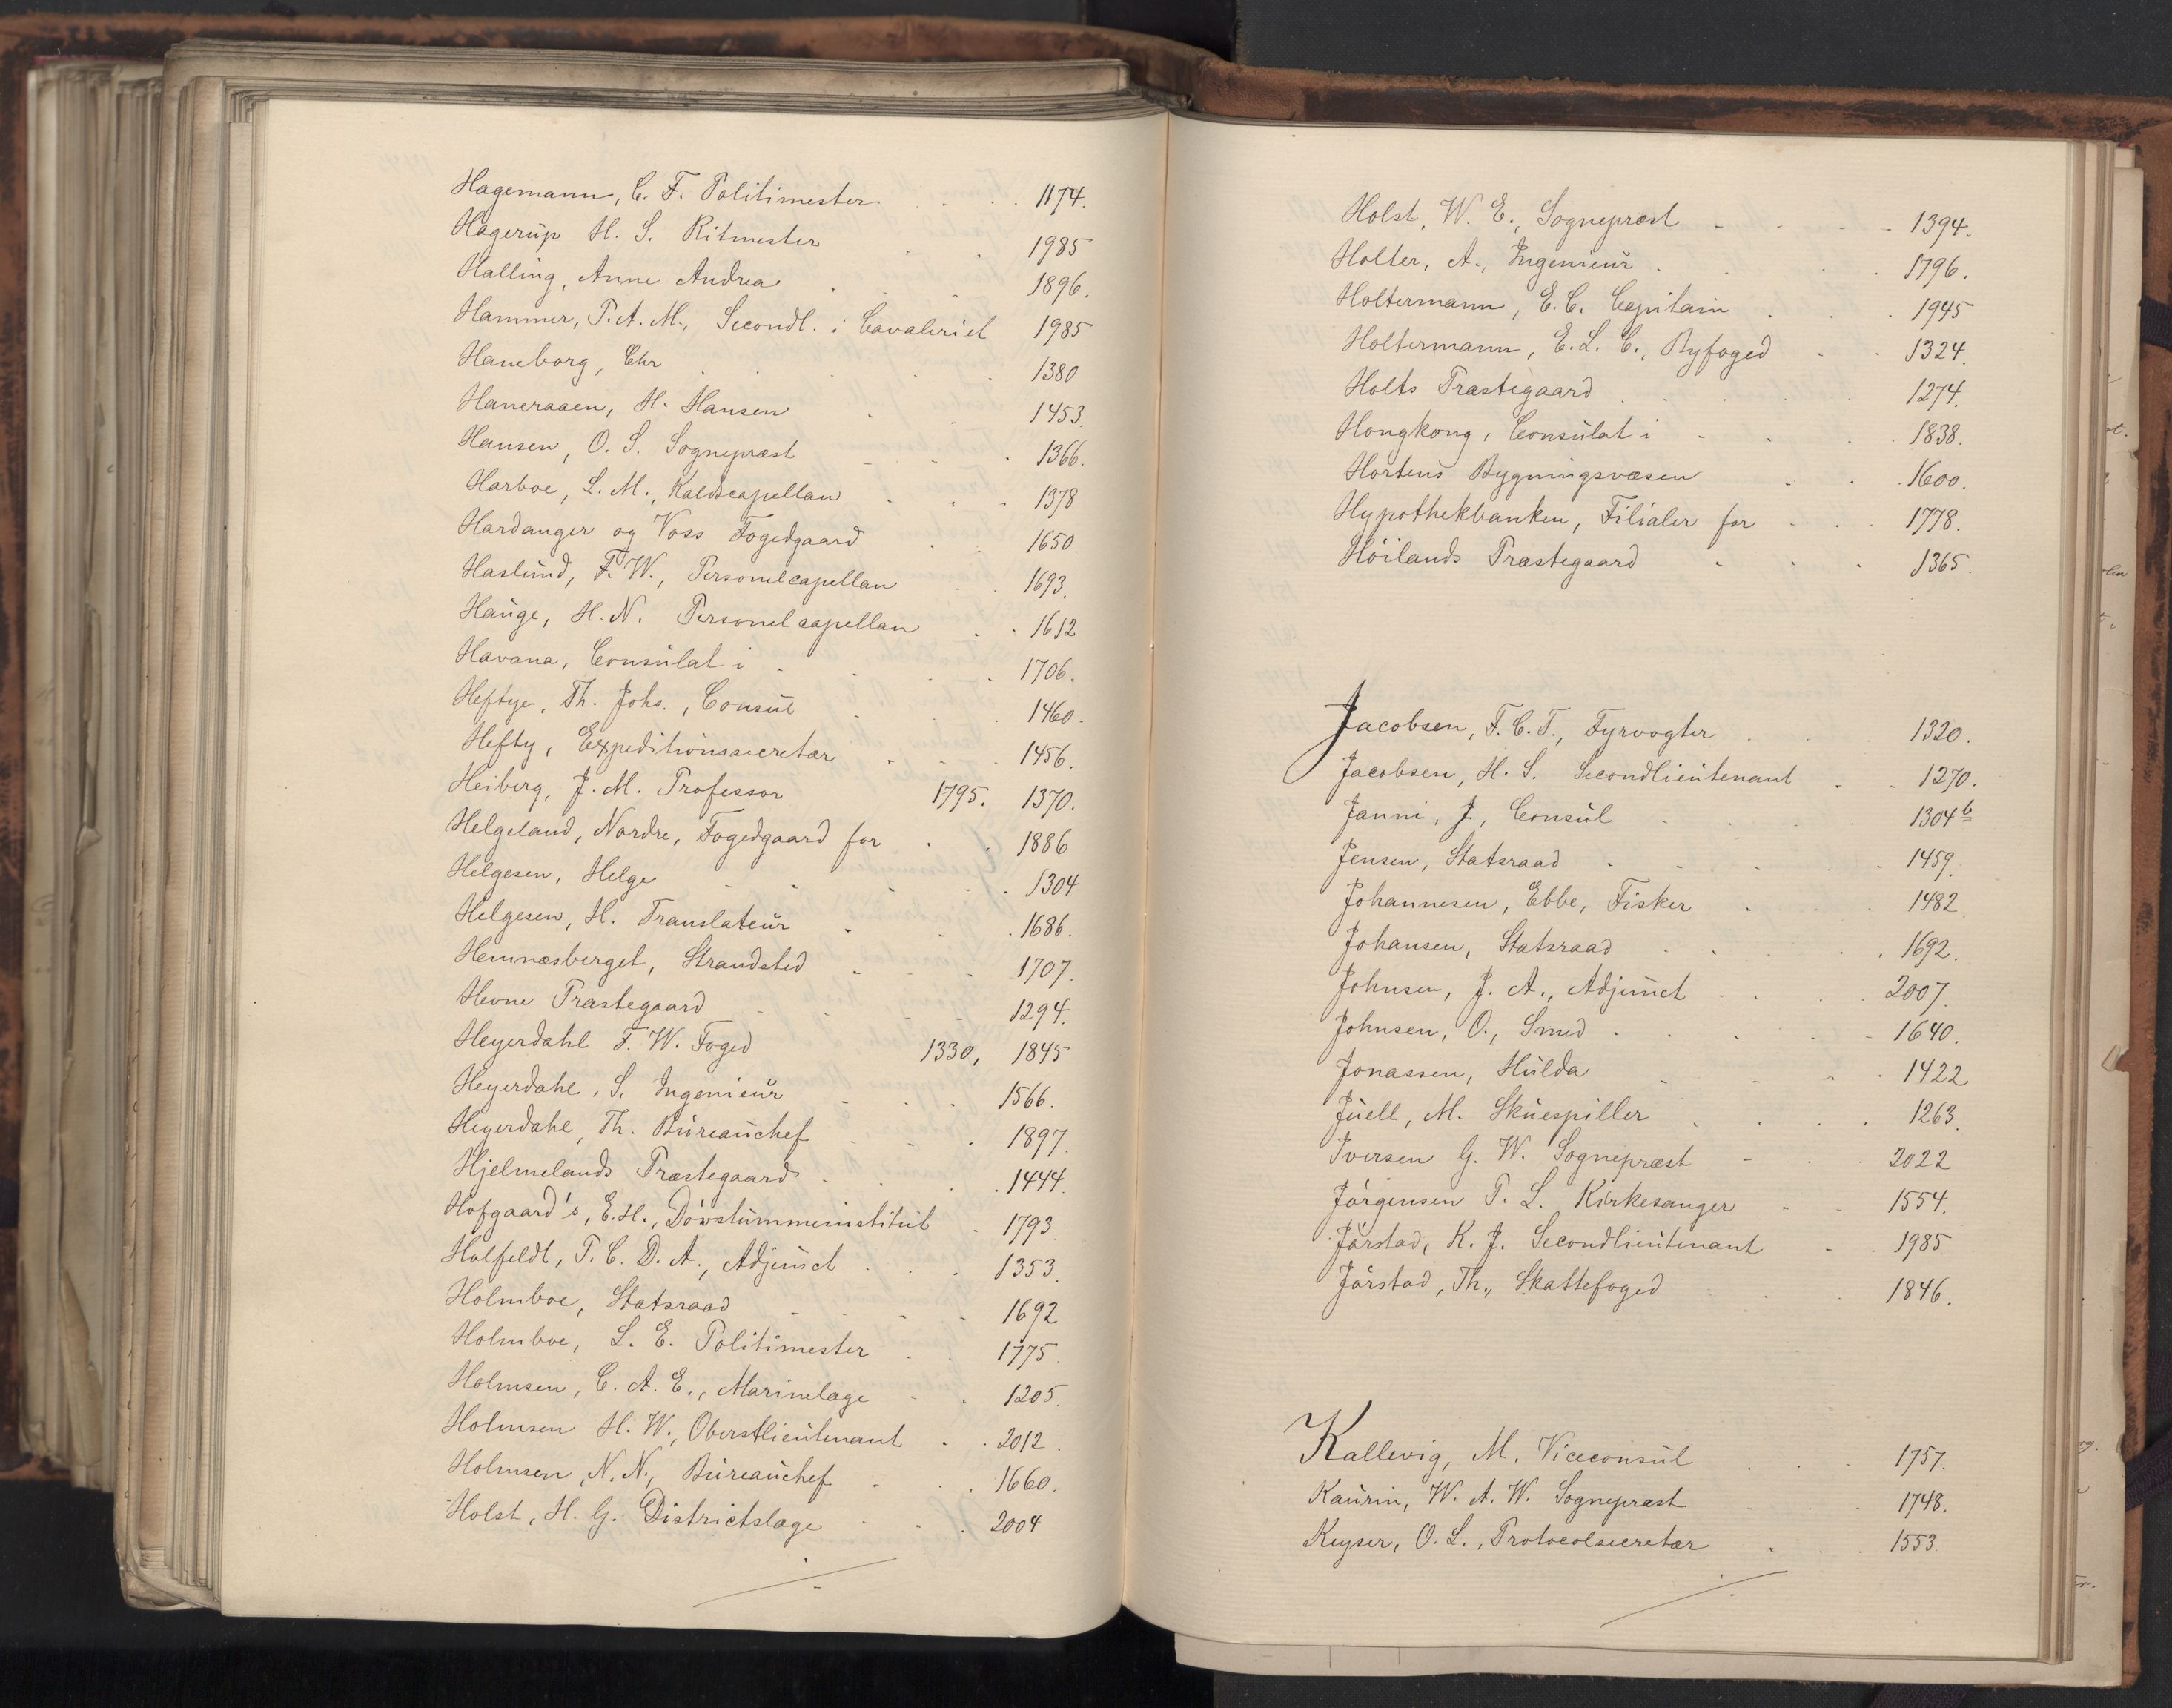 Hagemann, C. F. Politimester 1174.
Hagerup H. S. Ritmester 1985
Halling, Anne Andrea 1896.
Hammer, P. A. M., Secondl. i Cavaleriet 1985
Haneborg, Chr 1380
Haneraaen, H. Hansen 1453.
Hansen, O. S. Sognepræst 1366.
Harboe, L. M., Kaldscapellan 1378
Hardanger og Voss Fogedgaard 1650.
Haslund, F. W., Personelcapellan 1693.
Hauge, H. N. Personelcapellan 1612
Havana, Consulat i 1706.
Heftye, Th. Johs., Consul 1460.
Hefty, Expeditionssecretær 1456.
Heiberg, J. M. Professor 1795. 1370.
Helgeland, Nordre, Fogedgaard for 1886
Helgesen, Helge 1304
Helgesen, H. Translateur 1686.
Hemnæsberget, Strandsted 1707.
Hevne Præstegaard 1294.
Heyerdahl F. W. Foged 1330, 1845
Heyerdahl, S. Ingenieur 1566.
Heyerdahl, Th. Bureauchef 1897.
Hjelmelands Præstegaard 1444.
Hofgaard's, E. H., Døvstummeinstitut 1793.
Holfeldt, P. C. D. A., Adjunct 1353.
Holmboe, Statsraad 1692
Holmboe, L. E. Politimester 1775.
Holmsen, C. A. E., Marinelæge 1205.
Holmsen H. W., Oberstlieutenant 2012.
Holmsen, N. N., Bureauchef 1660.
Holst, H. G. Districtslæge 2004
Holst, W. E., Sognepræst 1394.
Holter, A., Ingenieur 1796.
Holtermann, E. C. Capitain 1945
Holtermann, E. L. C., Byfoged 1324.
Holts Præstegaard 1274.
Hongkong, Consulat i 1838.
Hortens Bygningsvæsen 1600.
Hypothekbanken, Filialer for 1778.
Höilands Præstegaard 1365.
Jacobsen, F. C. T., Fyrvogter 1320.
Jacobsen, H. S. Secondlieutenant 1270.
Janni, J, Consul 1304 b
Jensen, Statsraad 1459.
Johannesen, Ebbe, Fisker 1482
Johansen, Statsraad 1692.
Johnsen, J. A., Adjunct 2007.
Johnsen, O., Smed 1640.
Jonassen, Hulda 1422
Juell, M. Skuespiller 1263.
Iversen G. W. Sognepræst 2022
Jörgensen P. L. Kirkesanger 1554.
Jörstad, K. J. Secondlieutenant 1985
Jörstad, Th., Skattefoged 1846.
Kallevig, M. Viceconsul 1757.
Kaurin, W. A. W. Sognepræst 1748.
Keyser, O. L., Protocolsecretær 1553.